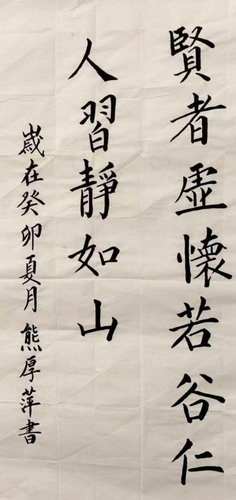 賢者虛懷若谷仁
人習靜如山
歲在癸卯夏月熊厚萍書